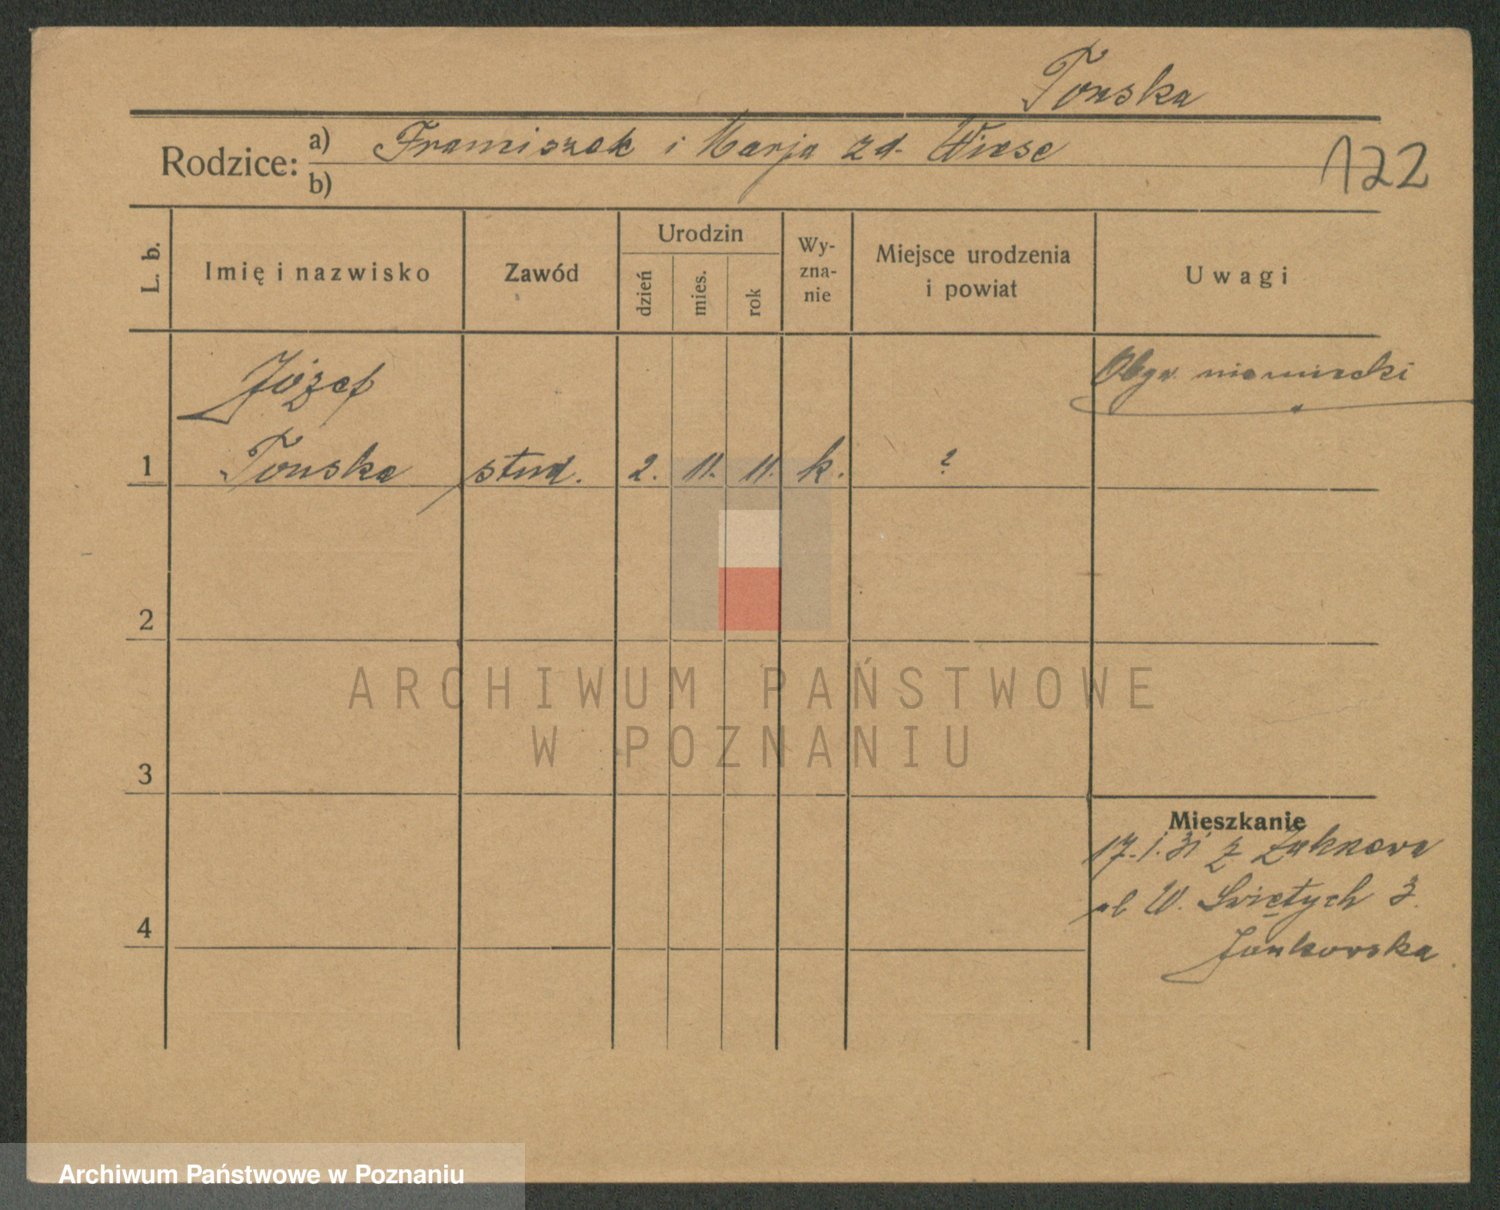 Tonska
Rodzice: a) Franciszek i Marja zd. Wiese
b)
122
L. b.
Imię i nazwisko
Zawód
Urodzin
dzień
mies.
rok
Wy-
zna-
nie
Miejsce urodzenia
i powiat
Uwagi
Józef
Obyw. niemiecki
1 Tonska stud. 2. 11. 11. k. ?
2
ARCHIWUM PAŃSTWOWE
W POZNANIU
3
Mieszkanie
17. 1. 31 z
W. Świętych 3.
4
Jankowska
Archiwum Państwowe w Poznaniu